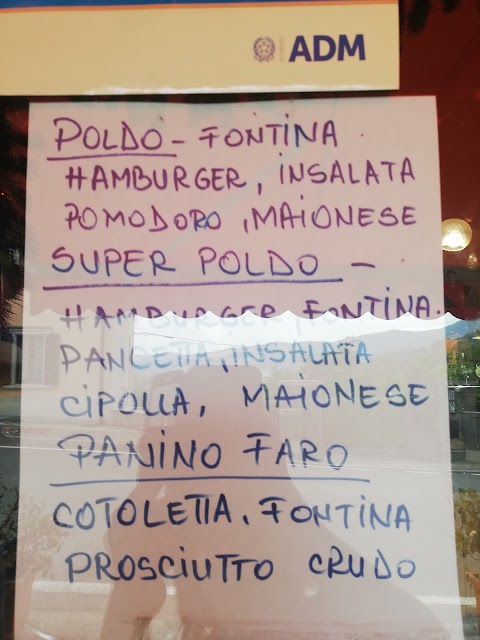 ADM
POLDO - FONTINA
HAMBURGER, INSALATA
POMODORO, MAIONESE
SUPER POLDO -
HAMBURGER, FONTINA.
PANCETTA, INSALATA
CIPOLLA, MAIONESE
PANINO FARO
COTOLETTA, FONTINA
PROSCIUTTO CRUDO